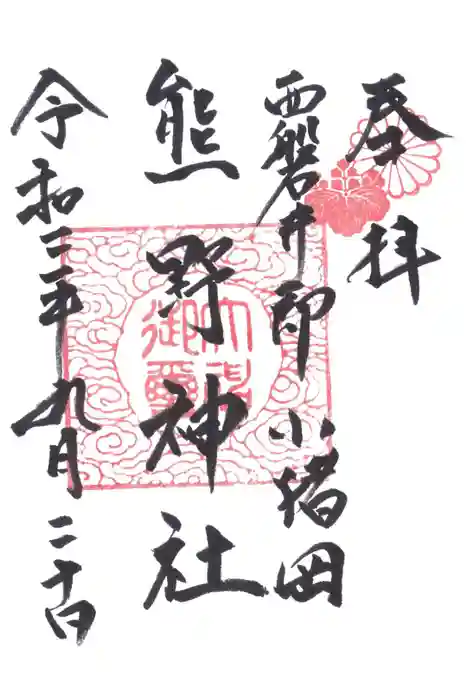 奉拝
西磐井印小猪岡
熊野神社
令和三年九月二十日